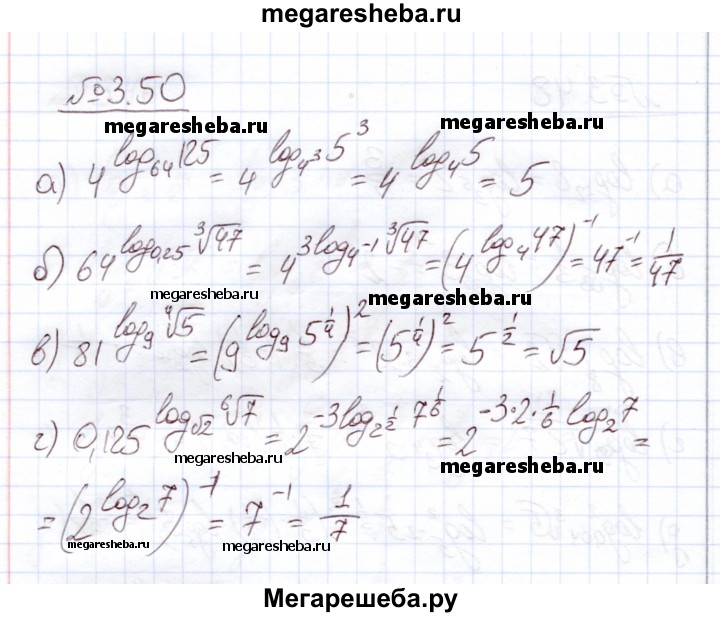 megaresheba.ru
№3.50
megaresheba.ru megaresheba.ru
а) 4^{log_{64}125} = 4^{log_{4^3}5^3} = 4^{log_4 5} = 5
б) 64^{log_{0,25}∛47} = 4^{3log_{4^{-1}}∛47} = (4^{log_4 47})^{-1} = 47^{-1} = 1/47
megaresheba.ru megaresheba.ru
в) 81^{log_9 ∜5} = (9^{log_9 5^{1/4}})^2 = (5^{1/4})^2 = 5^{1/2} = √5
г) 0,125^{log_{√2} ⁶√7} = 2^{-3log_{2^{1/2}} 7^{1/6}} = 2^{-3·2·1/6 log_2 7} =
megaresheba.ru megaresheba.ru
= (2^{log_2 7})^{-1} = 7^{-1} = 1/7
megaresheba.ru megaresheba.ru
Мегарешеба.ру